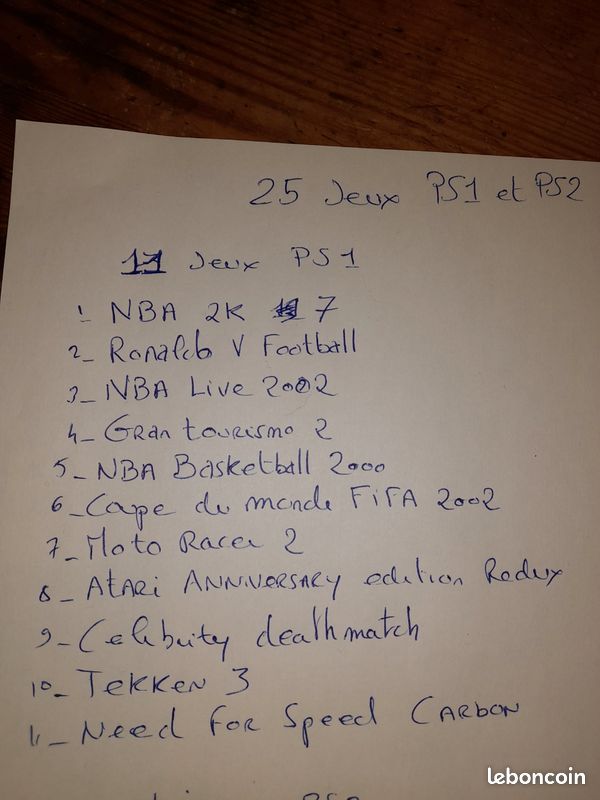 25 Jeux PS1 et PS2
11 Jeux PS1
1_ NBA 2K 7
2_ Ronaldo V Football
3_ NBA Live 2002
4_ Gran tourismo 2
5_ NBA Basketball 2000
6_ Coupe du monde FIFA 2002
7_ Moto Racer 2
8_ Atari ANNIVERSARY edition Redux
9_ Celebrity deathmatch
10_ Tekken 3
11_ Need For Speed CARBON
PS2
leboncoin